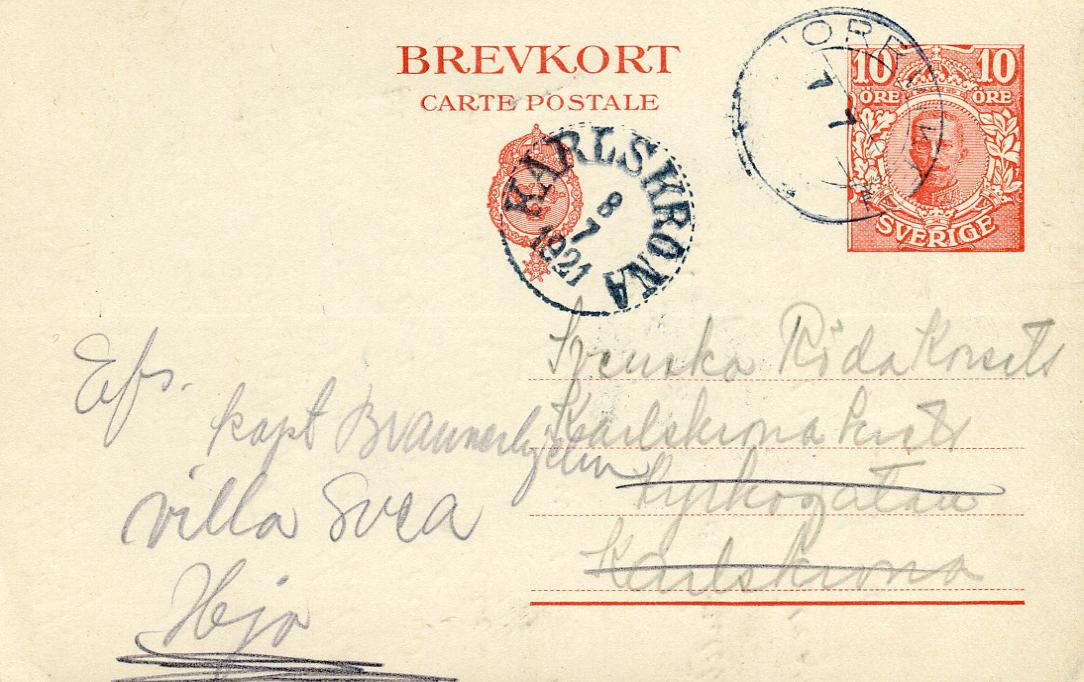 BREVKORT
CARTE POSTALE
10 10
ÖRE ÖRE
SVERIGE
7
7
KARLSKRONA
8
7
1921
Svenska Röda Korsets
Karlskrona krets
Kyrkogatan
Karlskrona
Efs.
kapt
villa Svea
Hjo